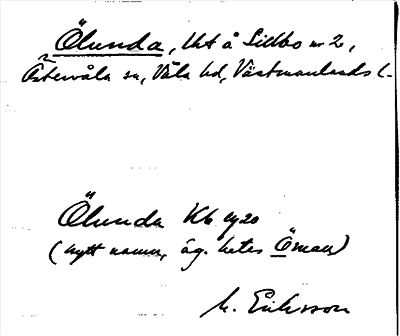 Ölunda, lht å Sillbo nr 2,
Östervåla sn, Våla hd, Västmanlands l.
Ölunda Kb 1920
(nytt namn, äg. hetes Öman)
M. Eriksson